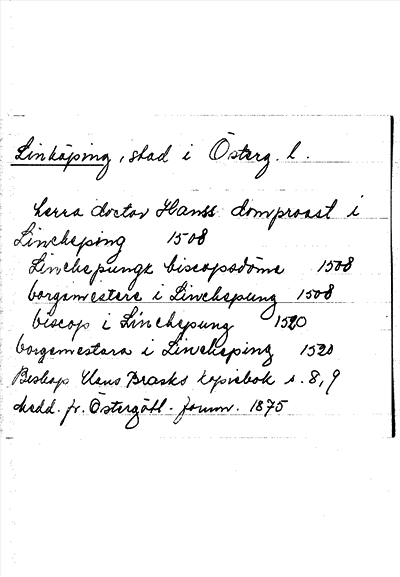 Linköping, stad i Österg. l.
herra doctor Hanss domproast i
Lincheping 1508
Linchepungx biscopsdöme 1508
borgemestere i Linchepung 1508
biscop i Linchepung 1520
borgemestara i Lincheping 1520
Biskop Hans Brasks kopiebok s. 8, 9
Medd. fr. Östergötl. fornm. 1875